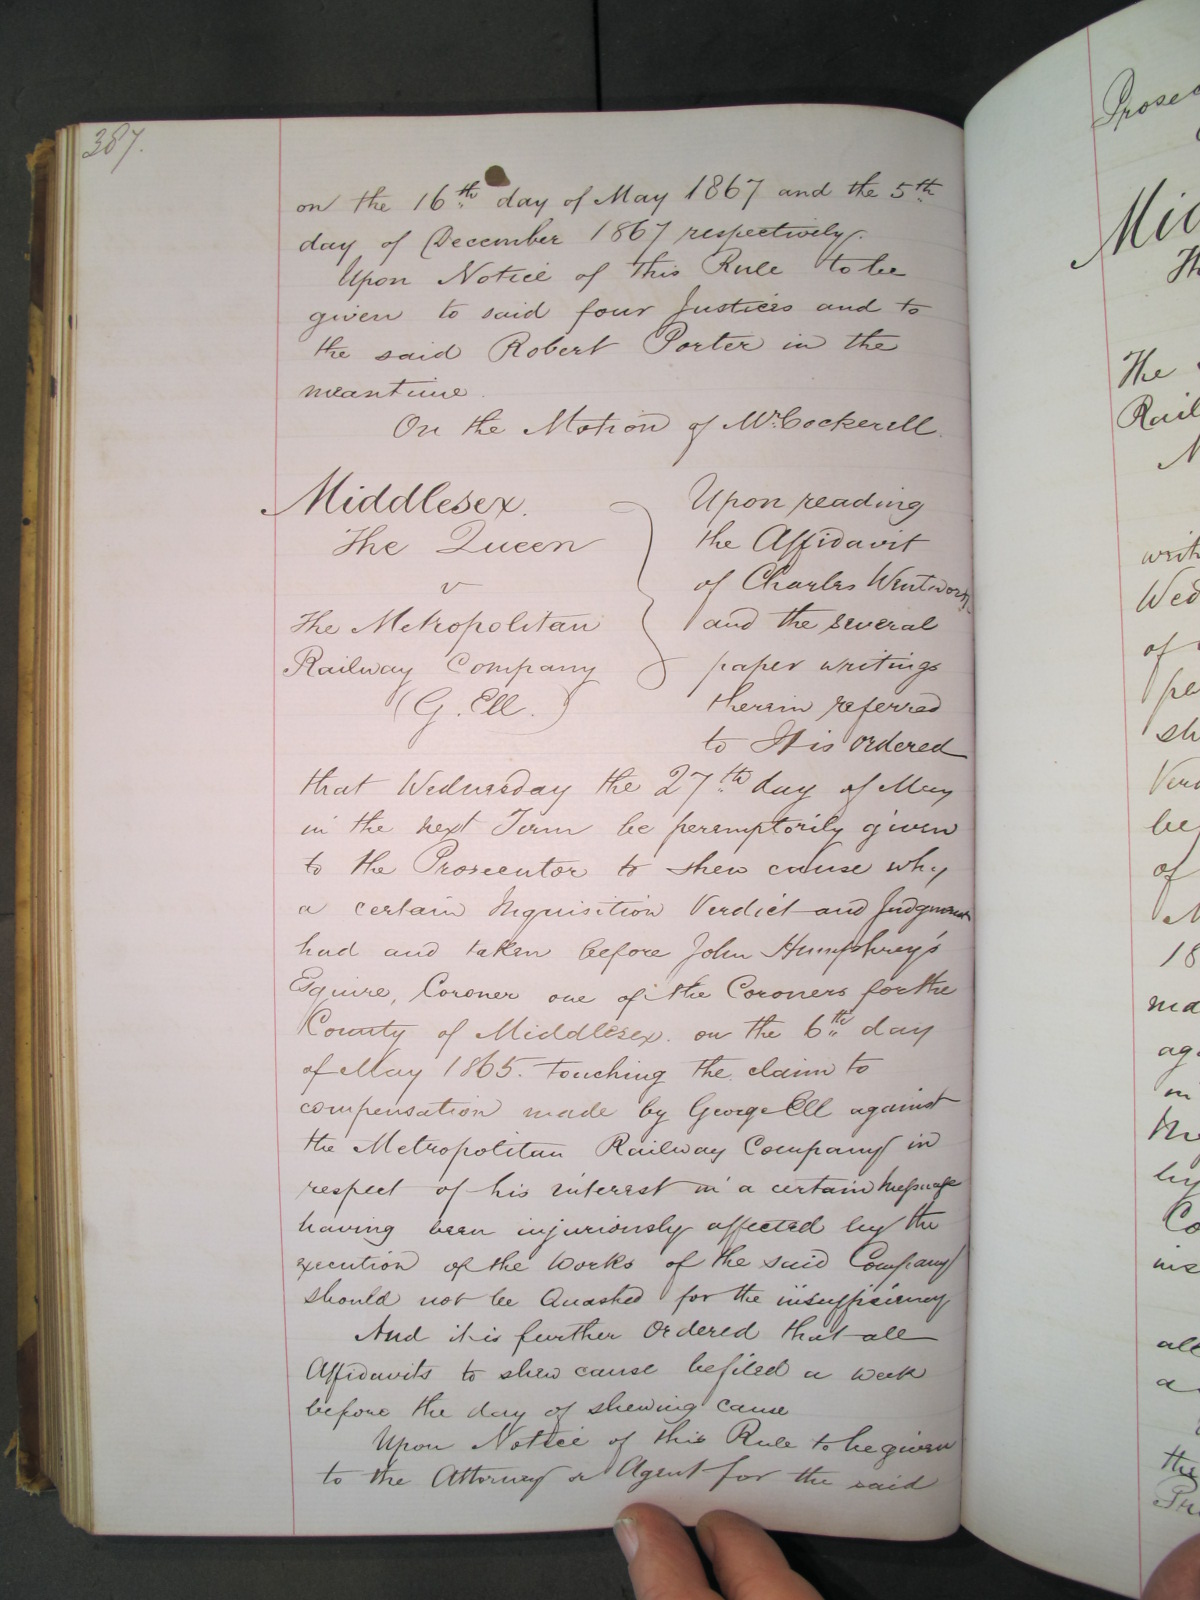 387.
on the 16th day of May 1867 and the 5th
day of December 1867 respectively.
Upon Notice of this Rule to be
given to said four Justices and to
the said Robert Porter in the
meantime.
On the Motion of Mr. Cockerell.
Middlesex.
The Queen
v
The Metropolitan
Railway Company
(G. Ell.)
Upon reading
the Affidavit
of Charles Wentworth
and the several
paper writings
therein referred
to It is ordered
that Wednesday the 27th day of May
in the next Term be peremptorily given
to the Prosecutor to shew cause why
a certain Inquisition Verdict and Judgment
had and taken before John Humphrey's
Esquire, Coroner one of the Coroners for the
County of Middlesex. on the 6th day
of May 1865. touching the claim to
compensation made by George Ell against
the Metropolitan Railway Company in
respect of his interest in a certain Message
having been injuriously affected by the
execution of the Works of the said Company
should not be Quashed for the insufficiency
And it is further Ordered that all
Affidavits to shew cause be filed a week
before the day of shewing cause
Upon Notice of this Rule to be given
to the Attorney or Agent for the said
Prosec
Mid
Th
The
Rail
writ
Wed
of
pe
sh
Ver
be
of
18
ma
ag
in
by
Co
ins
all
a
the